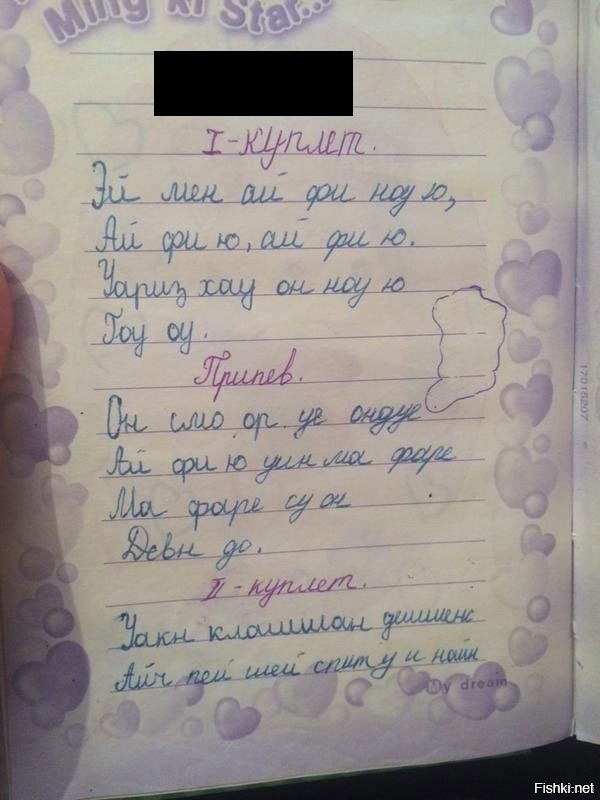 Ming ki Star...
I-куплет.
Эй мен ай фи ноу ю,
Ай фи ю, ай фи ю.
Уариз хау он ноу ю
Гоу оу.
Припев.
Он смо ор уе ондуе
Ай фи ю уин ма фаре
Ма фаре су он
Девн до.
II-куплет.
Уакн клашишан
Айч пей шей спиту и найн
My dream
17016207
Fishki.net